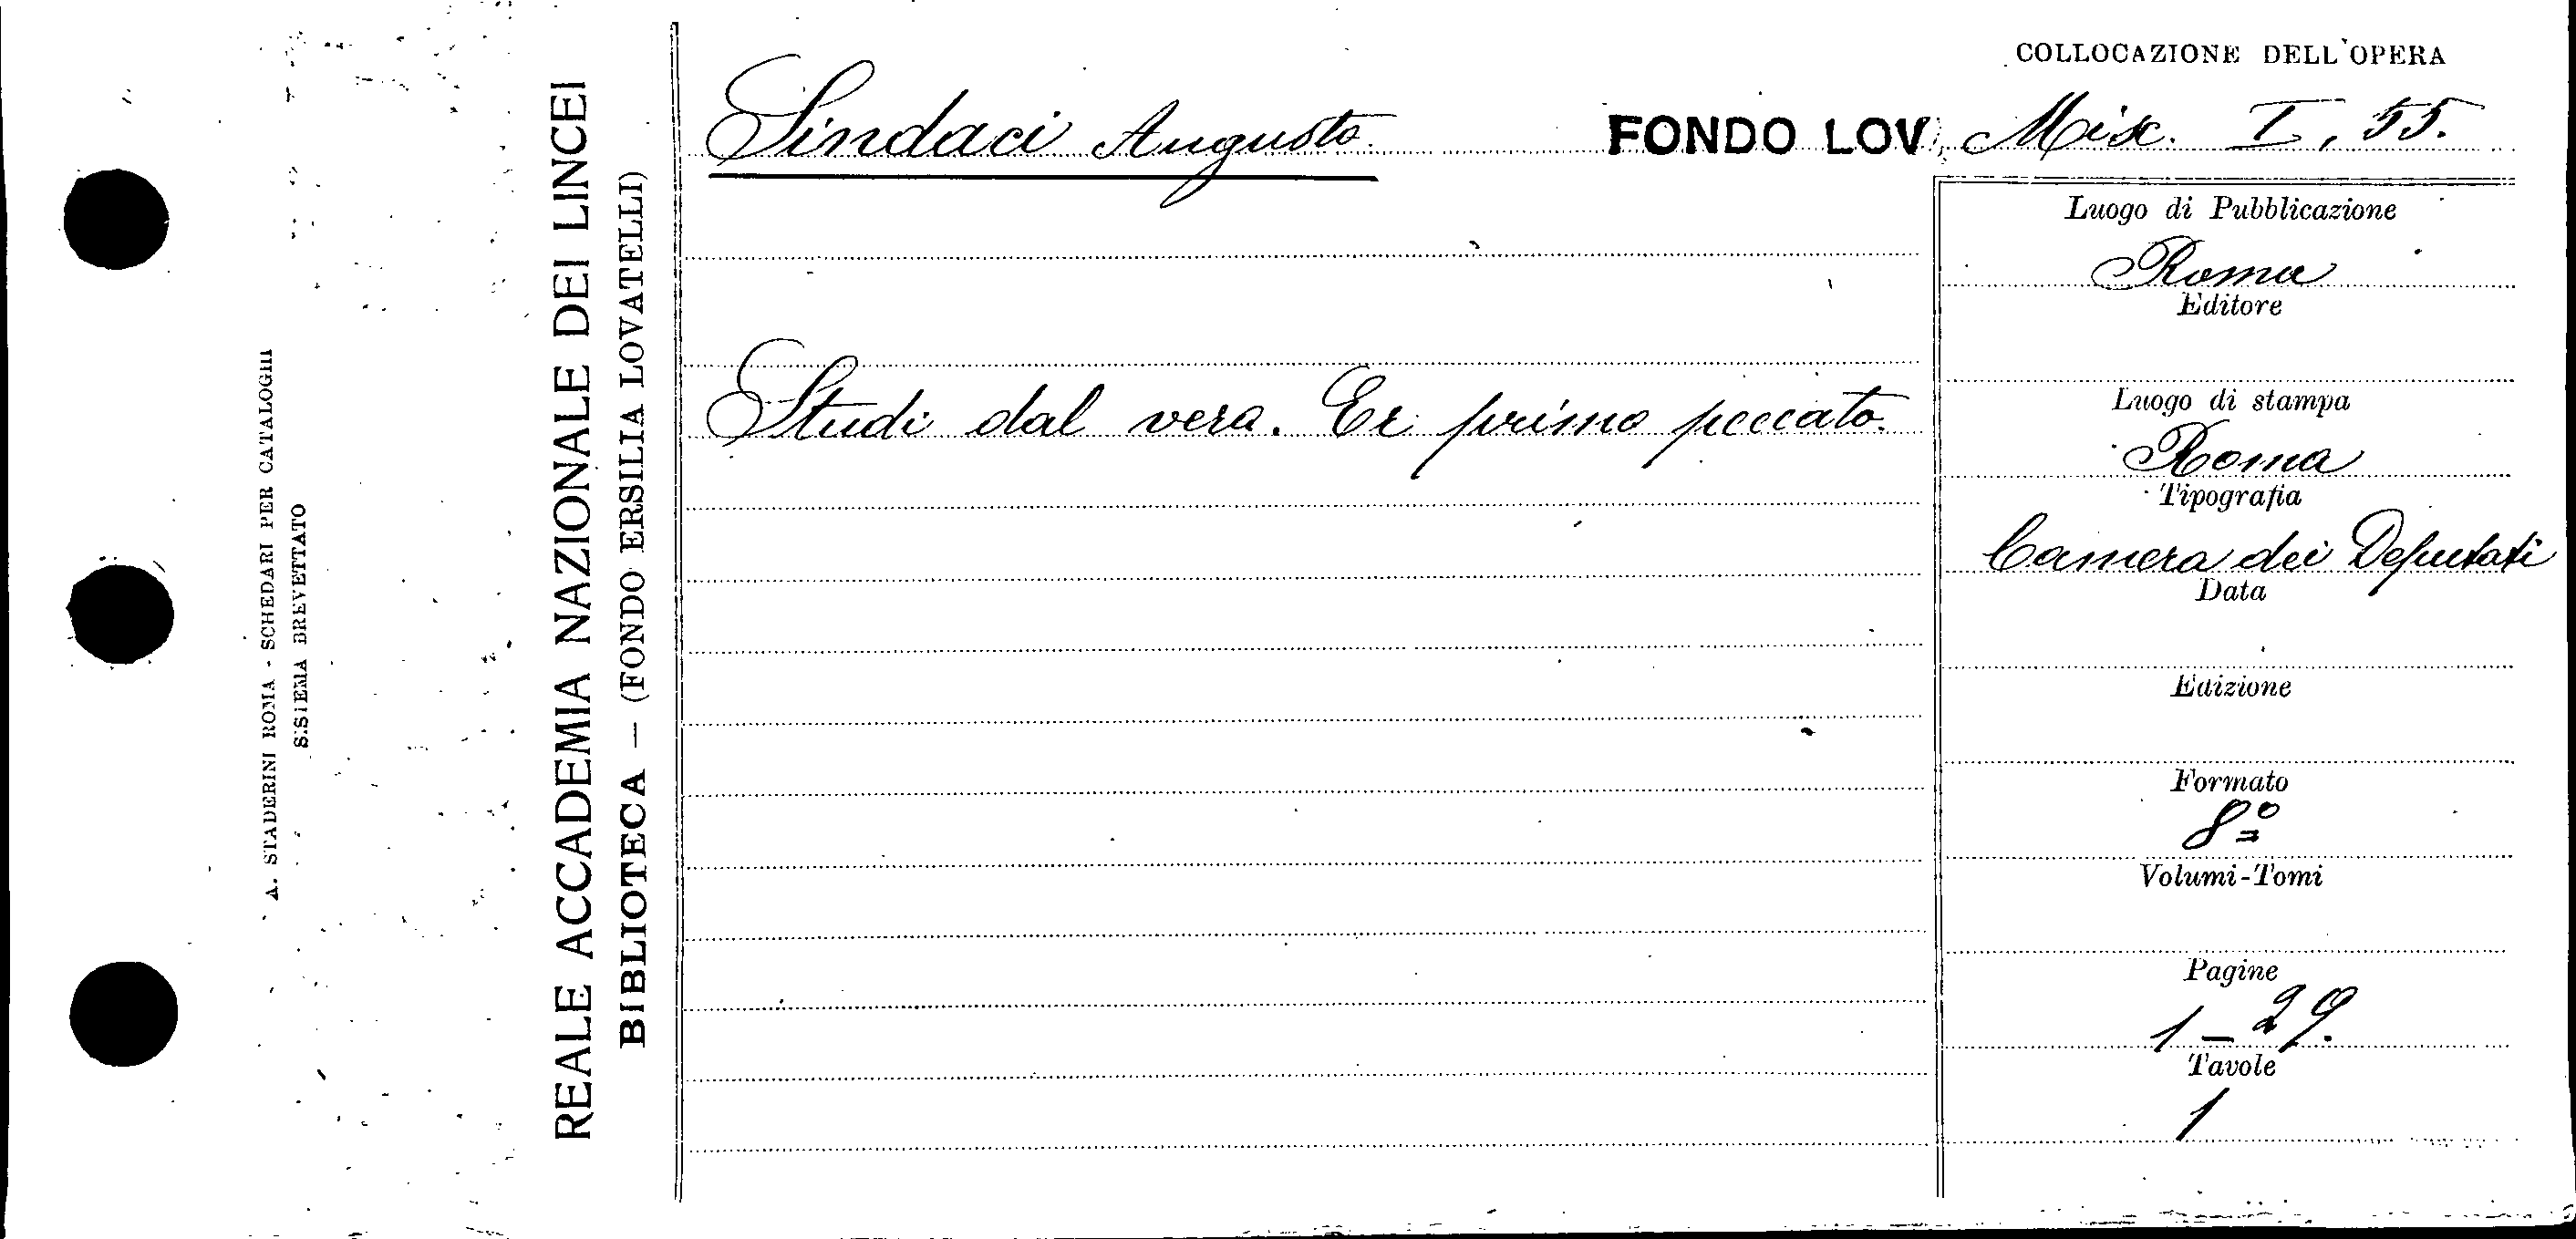 COLLOCAZIONE DELL'OPERA
Sindaci Augusto. FONDO LOV. Misc. I, 55.
Luogo di Pubblicazione
Roma
Editore
Studi dal vero. Er primo peccato.
Luogo di stampa
Roma
Tipografia
Camera dei Deputati
Data
Edizione
Formato
8º
Volumi-Tomi
Pagine
1-29.
Tavole
1
REALE ACCADEMIA NAZIONALE DEI LINCEI
BIBLIOTECA — (FONDO ERSILIA LOVATELLI)
A. STADERINI ROMA - SCHEDARI PER CATALOGHI
SISTEMA BREVETTATO